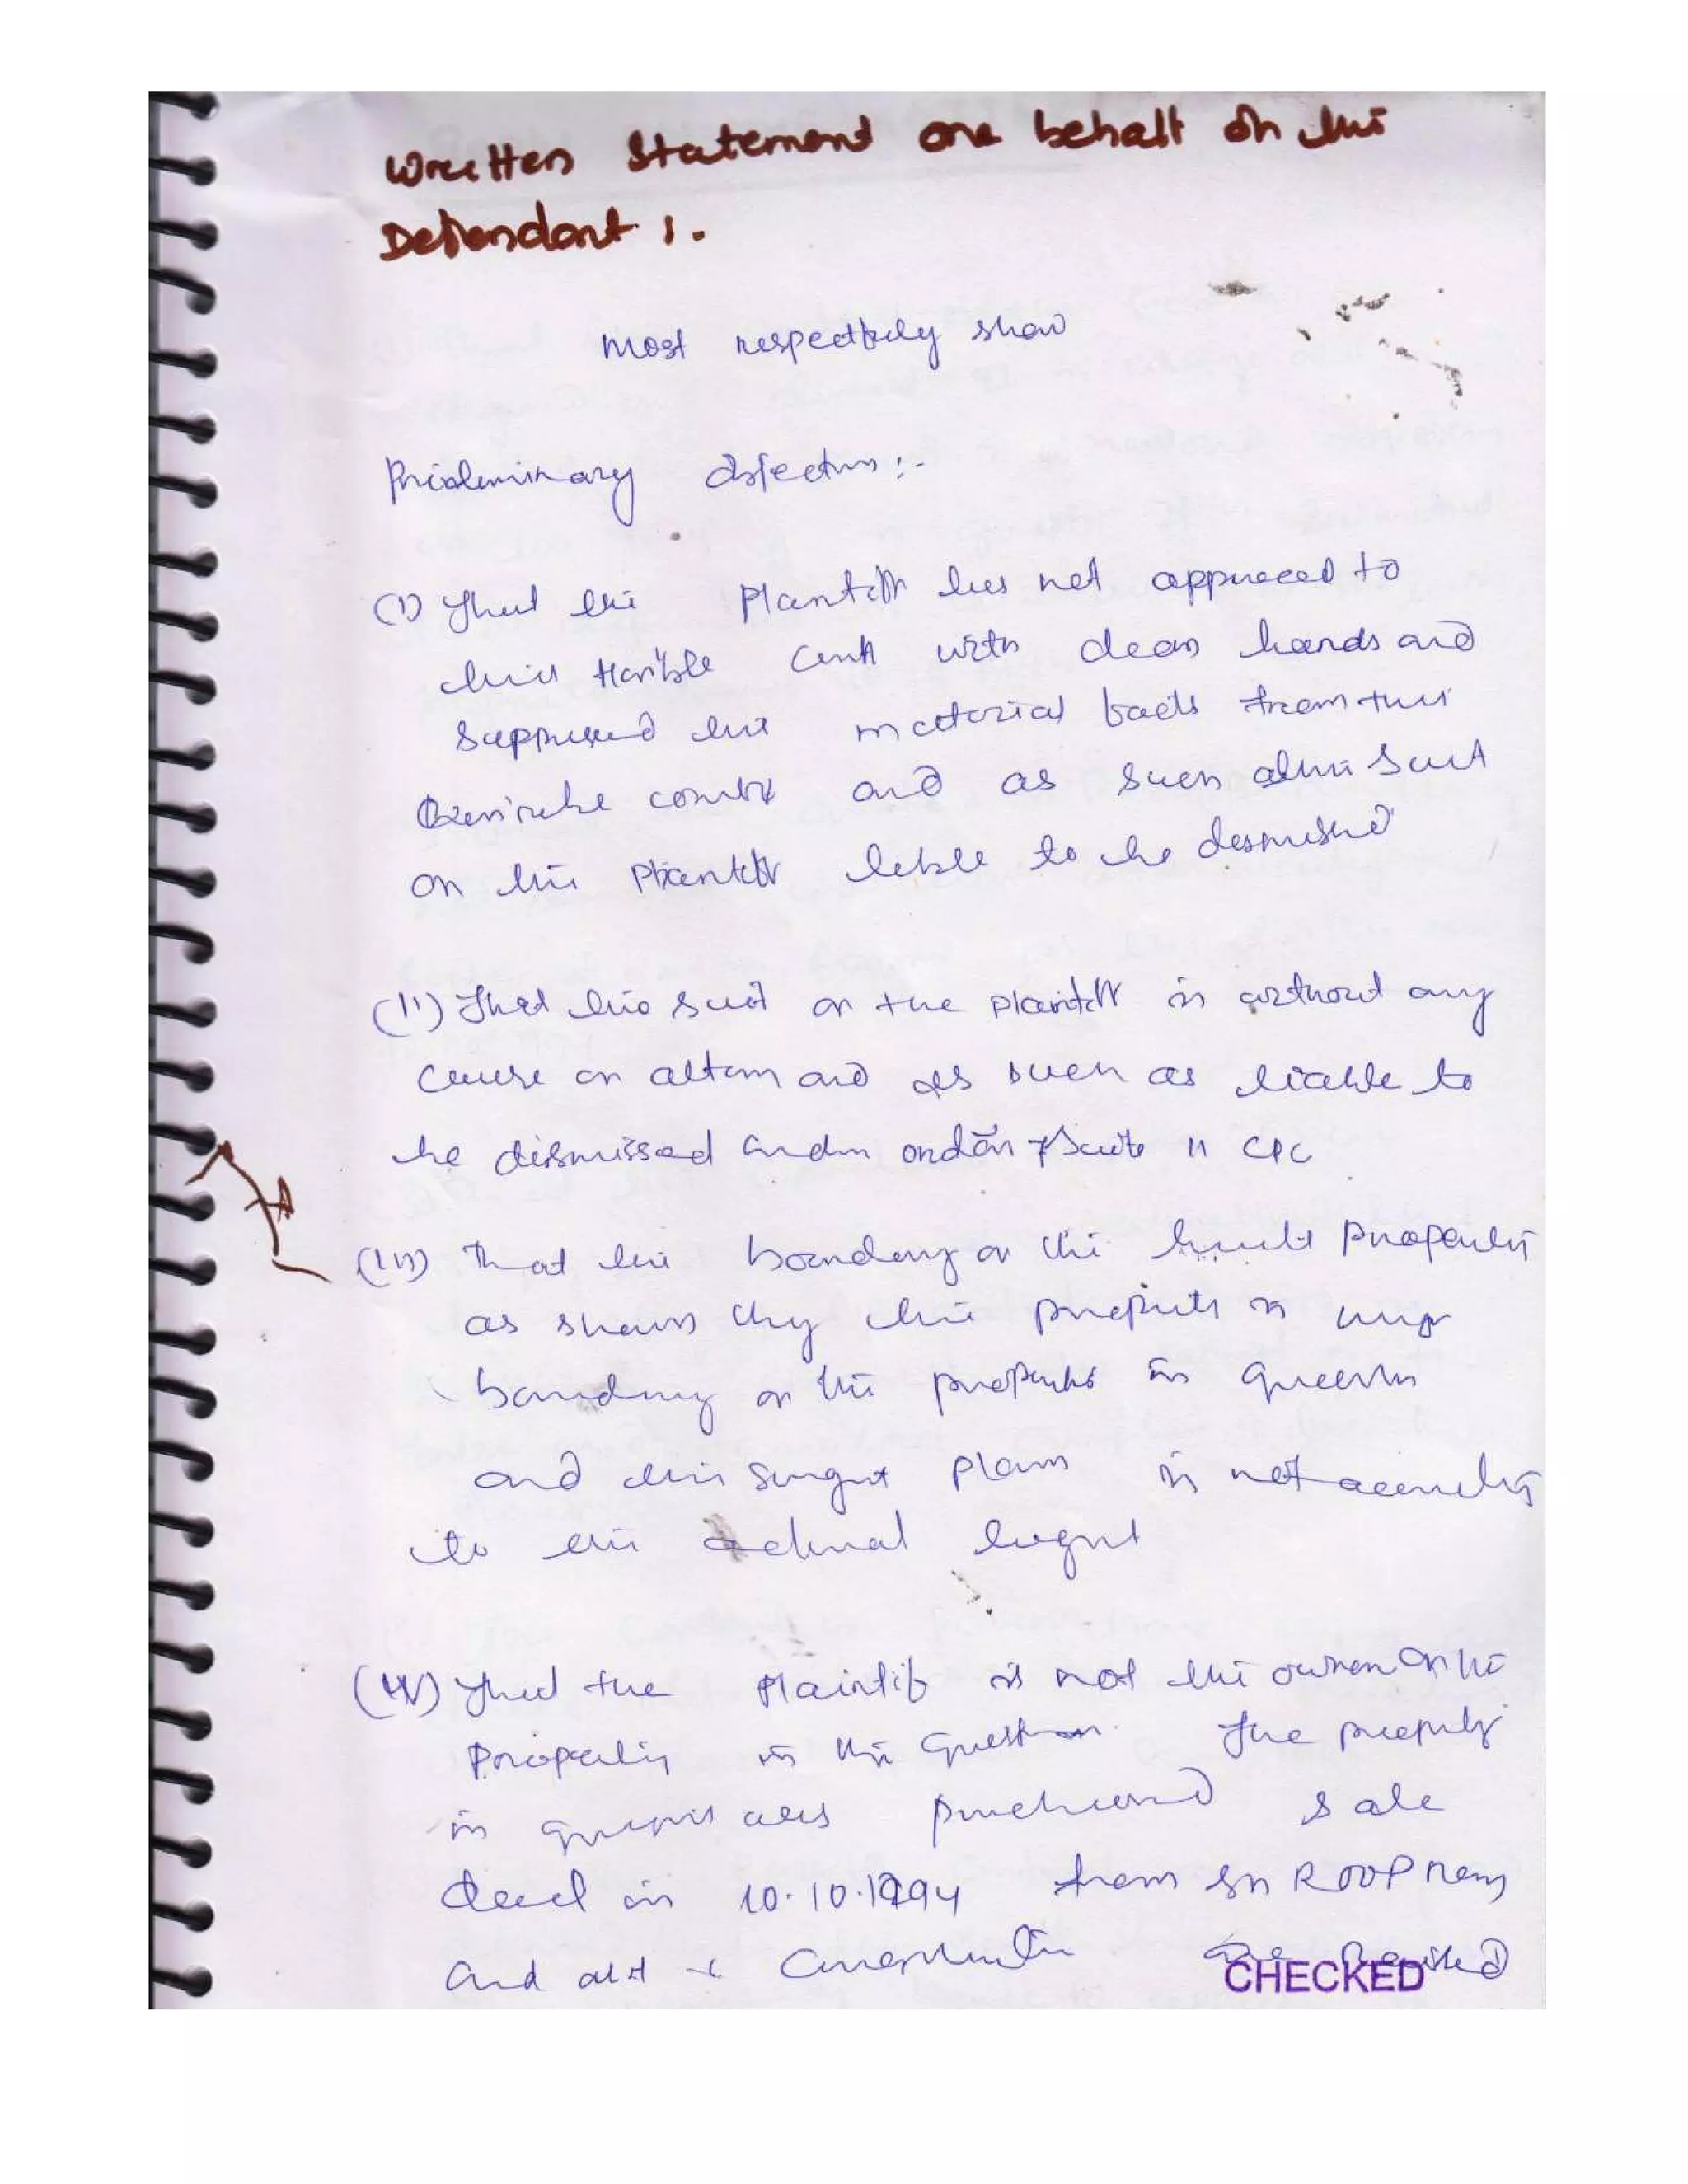 Written Statement one behalf on the
Defendant 1.
Most respectfuly show
Prieliminary objection :-
(I) That the Plantiff has not appraeced to
this Hon'ble Court with clean hands and
Suppressed the material facts from this
Hon'ble court and as such also the Suit
on the Plantiff liable to be desmissed
(II) That the Suit on the Plaintiff is without any
Cause on action and as such as liable to
be dismissed order 7 rule 11 CPC
(III) That the boundary on the Property
as shown by the is
boundary on the property in question
and the plan is not
to the actual
(IV) That the Plaintif is not the owner on the
Property in the Question. The property
in was purchased sale
deed in 10.10.1994 from Sh ROOP
and all
CHECKED